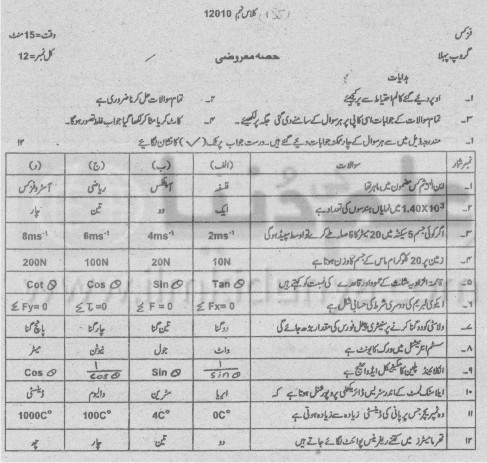 12010 کلاس نہم
فزکس
وقت=15 منٹ
گروپ پہلا
حصہ معروضی
کل نمبر=12
ہدایات
۱۔ اوپر دیئے گئے کالم احتیاط سے پر کیجیئے
۲۔ تمام سوالات حل کرنا ضروری ہے
۳۔ تمام سوالات کے جوابات اسی کاپی پر ہر سوال کے سامنے دی گئی جگہ پر لکھیئے۔
۴۔ کاٹ کر یا مٹا کر لکھا گیا جواب غلط تصور ہوگا۔
۱۔ مندرجہ ذیل میں سے ہر سوال کے چار ممکنہ جوابات دیئے گئے ہیں۔ درست جواب پر ٹک (✓) کا نشان لگائیے ۱۲
نمبر شمار سوالات (الف) (ب) (ج) (د)
۱۔ ابن الہیثم کس مضمون میں ماہر تھا فلسفہ آپٹکس ریاضی آسٹروفزکس
۲۔ 1.40X10³ میں نمایاں ہندسوں کی تعداد ہے ایک دو تین چار
۳۔ اگر کوئی جسم 5 سیکنڈ میں 20 میٹر کا فاصلہ طے کرے تو اوسط سپیڈ ہوگی 2ms⁻¹ 4ms⁻¹ 6ms⁻¹ 8ms⁻¹
۴۔ زمین پر 20 کلوگرام ماس کے جسم کا وزن ہوتا ہے 10N 20N 100N 200N
۵۔ قائمۃ الزاویہ مثلث کے عمود اور قاعدہ کی نسبت کو کہتے ہیں Tan Θ Sin Θ Cos Θ Cot Θ
۶۔ ایکوی لبریم کی دوسری شرط کی حسابی شکل ہے ≤ Fx=0 ≤ F = 0 ≤ τ=0 ≤ Fy=0
۷۔ ولاسٹی کو دوگنا کرنے پر سینٹری پیٹل فورس کی مقدار بڑھ جائے گی دوگنا تین گنا چار گنا پانچ گنا
۸۔ سسٹم انٹرنیشنل میں ورک کا یونٹ ہے واٹ جول نیوٹن میٹر
۹۔ انکلائینڈ پلین کا مکینیکل ایڈوانٹیج ہے 1/sinΘ Sin Θ 1/cosΘ Cos Θ
۱۰۔ ایلاسٹک لمٹ کے اندر سٹریس ڈائریکٹلی پروپورشنل ہوتا ہے کہ ایریا سٹرین والیوم ڈینسٹی
۱۱ وہ ٹمپریچر جس پر پانی کی ڈینسٹی زیادہ سے زیادہ ہوتی ہے 0C° 4C° 100C° 1000C°
۱۲ تھرمامیٹرز میں کتنے ریفرنس پوائنٹ لگائے جاتے ہیں دو تین چار چھ